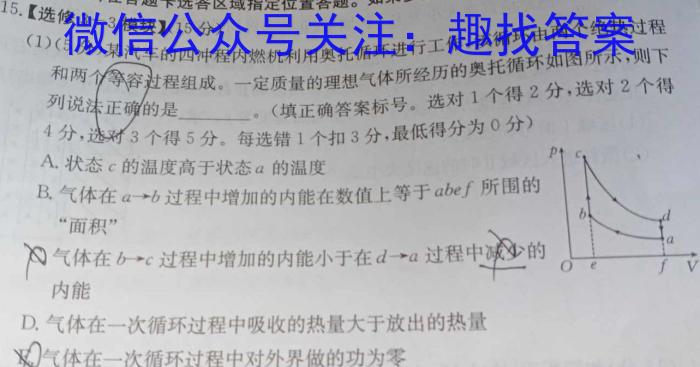 答题卡选答区域指定位置答题。如果多
15.【选修3-3模块】(15分)
微信公众号关注：趣找答案
(1)(5分)某汽车的四冲程内燃机利用奥托循环进行工作
过程
和两个等容过程组成。一定质量的理想气体所经历的奥托循环如图所示,则下
列说法正确的是________。(填正确答案标号。选对1个得2分,选对2个得
4分,选对3个得5分。每选错1个扣3分,最低得分为0分)
A. 状态c的温度高于状态a的温度
B. 气体在a→b过程中增加的内能在数值上等于abef所围的
“面积”
气体在b→c过程中增加的内能小于在d→a过程中减少的
内能
D. 气体在一次循环过程中吸收的热量大于放出的热量
气体在一次循环过程中对外界做的功为零
p
c
b
d
a
O
e
f
V